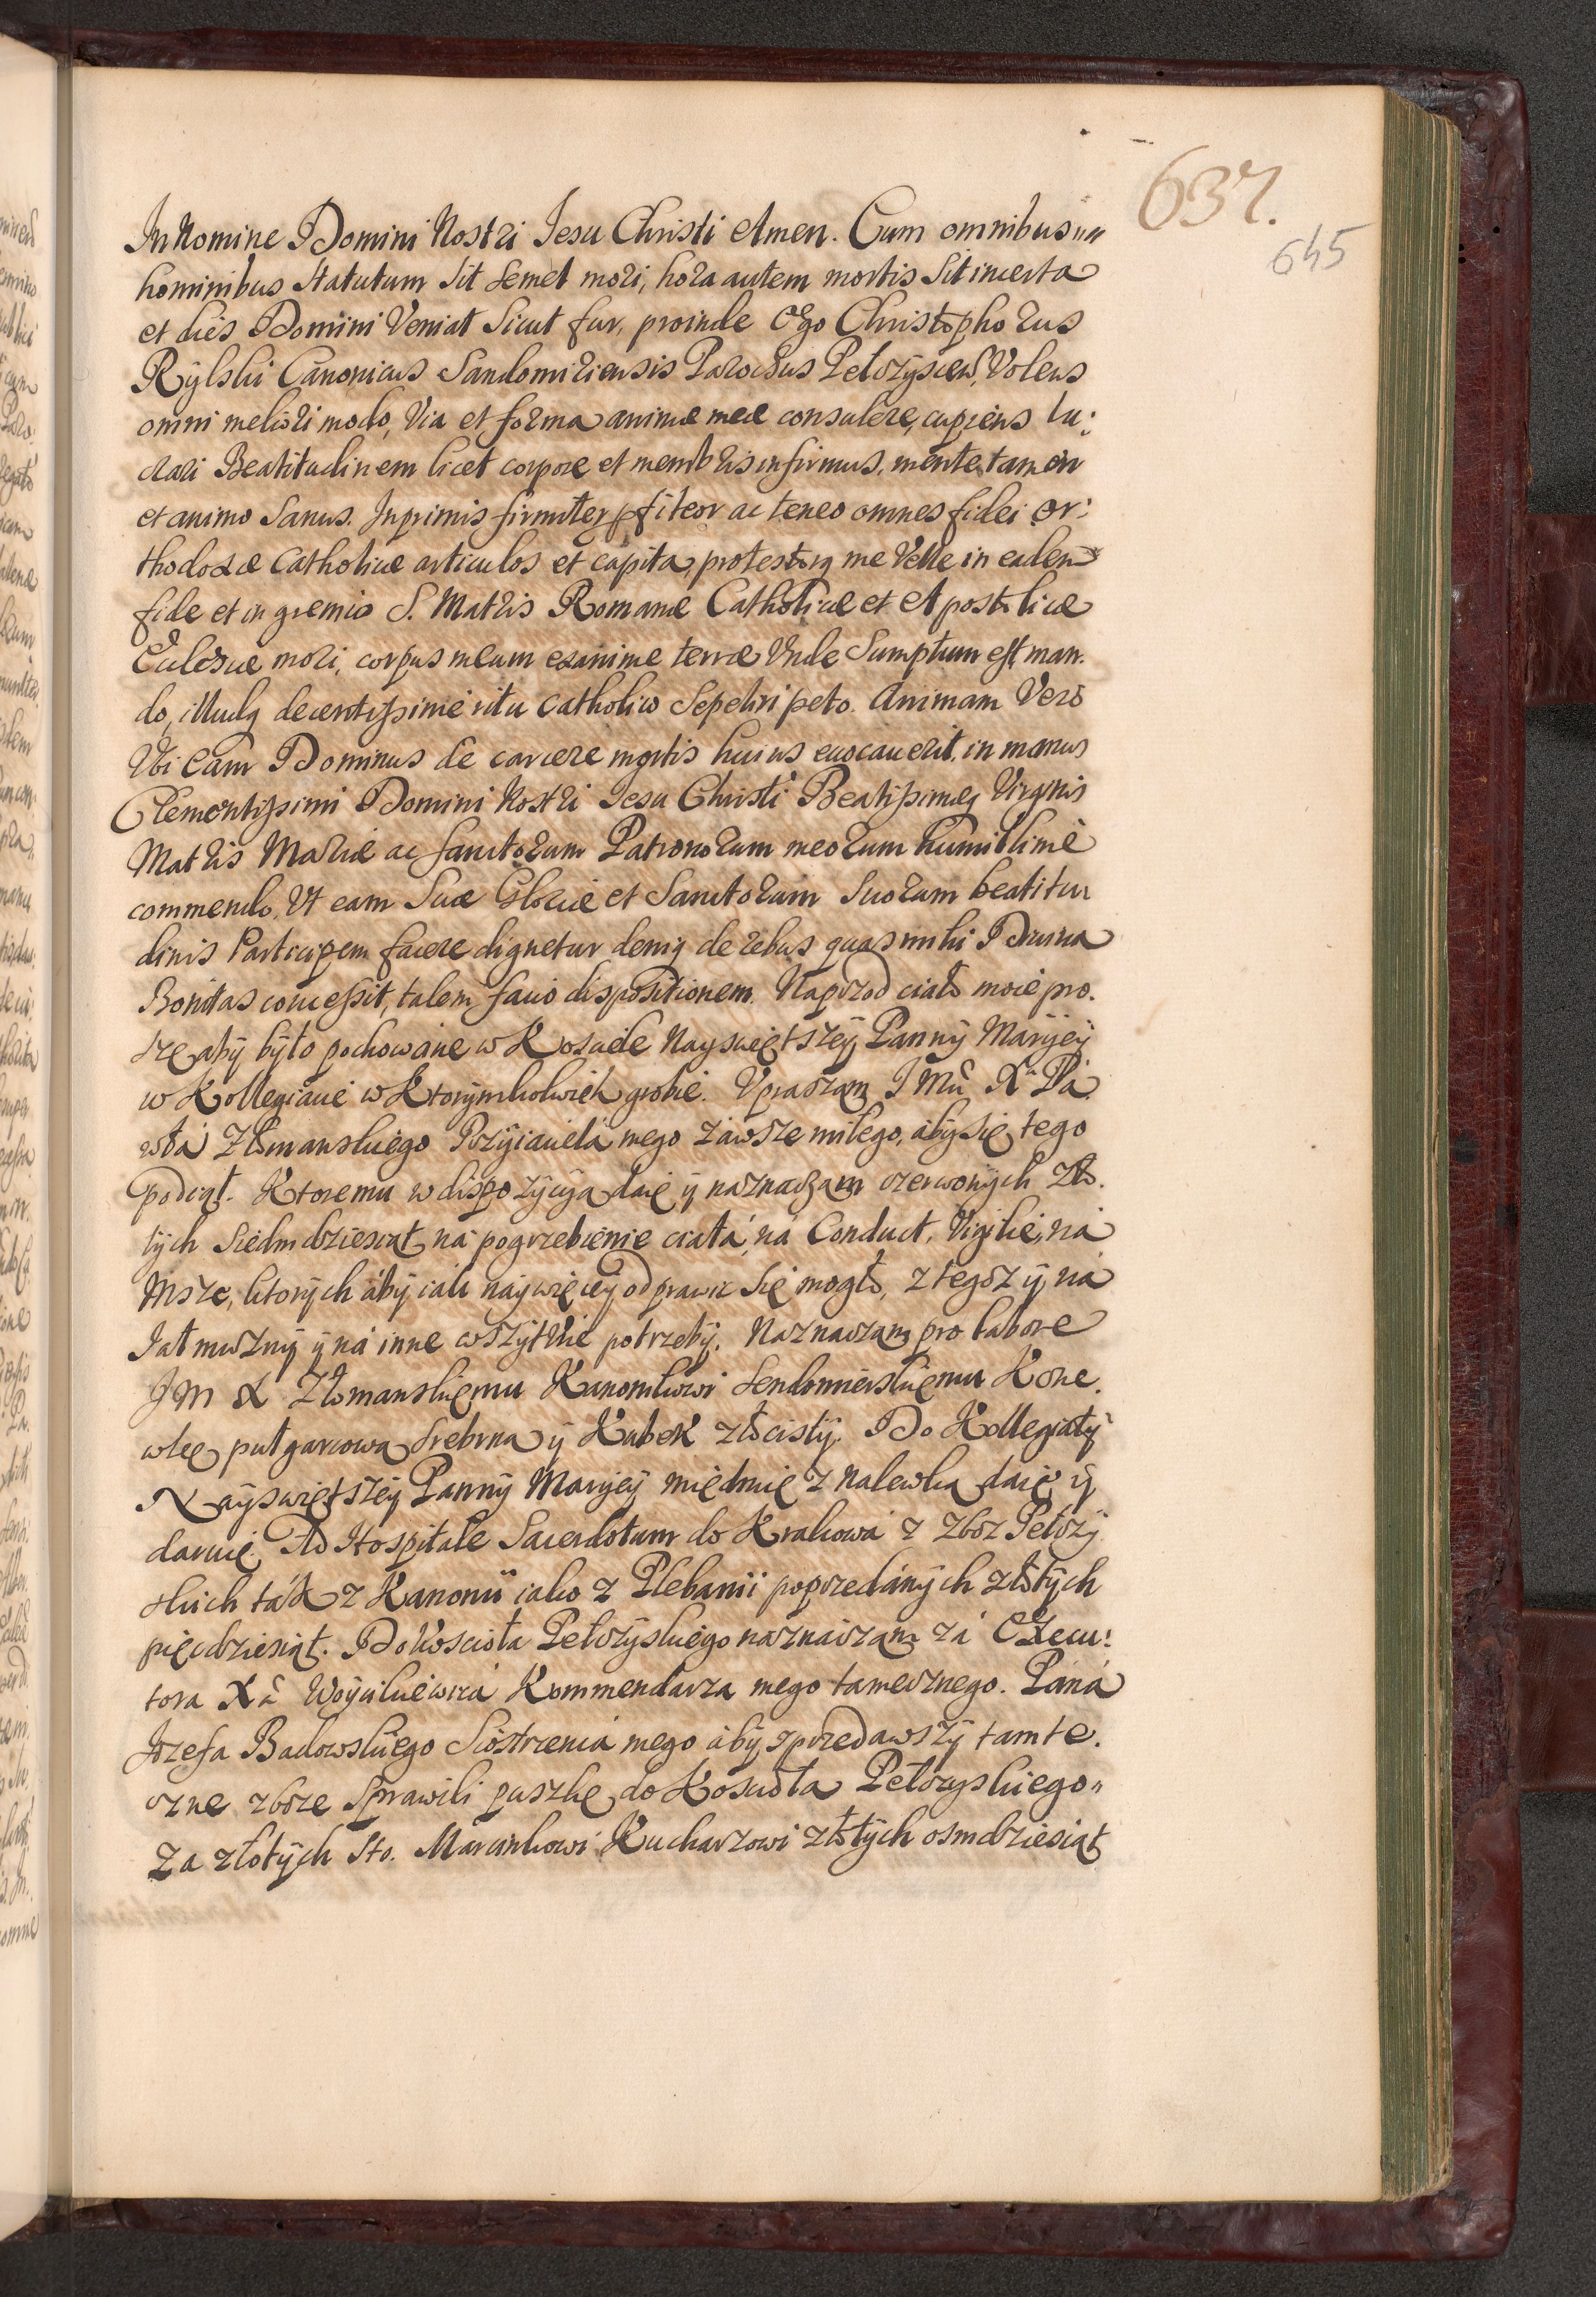 637.
645
In Nomine Domini Nostri Jesu Christi Amen. Cum omnibus
hominibus statutum sit semel mori, hora autem mortis sit incerta
et dies Domini Veniat Sicut fur, proinde Ego Christophorus
Rylski Canonicus Sandomiriensis Parochus Pelczyscen, Volens
omni meliori modo, Via et forma animæ meæ consulere, cupiens lu:
crari Beatitudinem licet corpore et membris infirmus, mente tamen
et animo Sanus. Inprimis firmiter pfiteor ac teneo omnes fidei or:
thodoxæ Catholicæ articulos et capita, protestorq me Velle in eadem
fide et in gremio S. Matris Romanæ Catholicæ et Apostolicæ
Ecclesiæ mori, corpus meum exanime terræ Unde Sumptum est man.
do, illudq decentissime ritu catholico Sepeliri peto. Animam Verò
Ubi eam Dominus de carcere mortis huius euocauerit, in manus
Clementissimi Domini Nostri Jesu Christi Beatissimæq Virginis
Matris Mariæ ac Sanctorum Patronorum meorum humillimè
commendo, Ut eam Suæ Gloriæ et Sanctorum Suorum beatitu
dinis Participem facere dignetur deniq de rebus quas mihi Diuina
Bonitas concessit, talem facio dispositionem. Naprzod ciało moie pro.
szę aby było pochowane w Kosciele Nayswiętszey Panny Maryey
w Kollegiacie w Ktorymkolwiek grobie. Upraszam J Mci Xa Pa
wła Złomanskiego Przyiaciela mego zawsze miłego, aby się tego
podiął. Ktoremu w dispozycyą daię y naznaczam czerwonych zło.
tych Siedmdziesiąt, na pogrzebienie ciała, na Conduct, Vigilie, na
Msze, ktorych aby iak naywięcey odprawic się mogło, z tegosz y na
Jałmuzny y na inne wszytkie potrzeby. Naznaczam pro labore
J M X Złomanskiemu Kanonikowi Sendomierskiemu Kone.
wkę pułgarcowa Srebrna y Kubek złocisty. Do Kollegiaty
Nayswiętszey Panny Maryey miednię z nalewka daię y
daruię. Ad Hospitale Sacerdotum do Krakowa z zboz Pełczy
skich tak z Kanonii iako z Plebanii poprzedanych złotych
pięcdziesiąt. Do Kosciola Pełczyskiego naznaczam za Execu:
tora Xa Woyciekiewicza Kommendarza mego tamecznego. Pana
Jozefa Badowskiego Siostrzenca mego aby zprzedawszy tamte.
czne zboze Sprawili puszkę do Kosciola Pełczyskiego
za złotych Sto. Marcinkowi Kucharzowi złotych osmdziesiąt